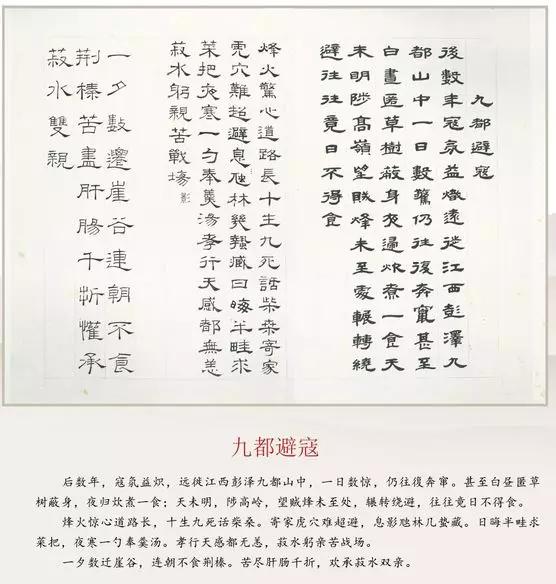 九都避寇
後數年寇氛益熾遠徙江西彭澤九
都山中一日數驚仍往復奔竄甚至
白晝匿草樹蔽身夜歸炊煮一食天
未明陟高嶺望賊烽未至處輾轉繞
避往往竟日不得食
烽火驚心道路長十生九死話柴桑寄家
虎穴難超避息虺林幾蟄藏日晦半畦求
菜把夜寒一勺奉羹湯孝行天感都無恙
菽水躬親苦戰場影
一夕數遷崖谷連朝不食
荆榛苦盡肝腸千折懽承
菽水雙親
九都避寇
后数年，寇氛益炽，远徙江西彭泽九都山中，一日数惊，仍往復奔窜。甚至白昼匿草
树蔽身，夜归炊煮一食；天未明，陟高岭，望贼烽未至处，辗转绕避，往往竟日不得食。
烽火惊心道路长，十生九死话柴桑。寄家虎穴难超避，息影虺林几蛰藏。日晦半畦求
菜把，夜寒一勺奉羹汤。孝行天感都无恙，菽水躬亲苦战场。
一夕数迁崖谷，连朝不食荆榛。苦尽肝肠千折，欢承菽水双亲。